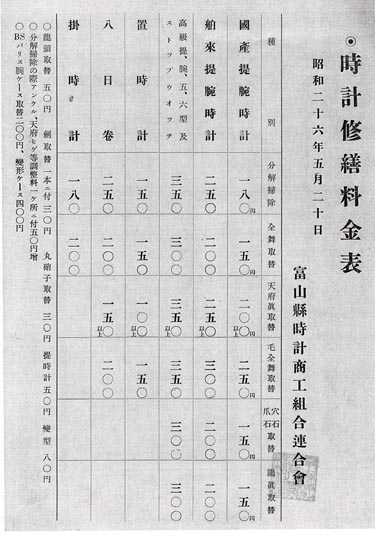 ◉時計修繕料金表
昭和二十六年五月二十日
富山縣時計商工組合連合會
種別 分解掃除 全舞取替 天府眞取替 毛全舞取替 穴石爪石取替 龍眞取替
國產提腕時計 一八〇円 一五〇円 二〇〇円 二五〇円 一五〇円 一五〇円
舶来提腕時計 二五〇 二〇〇 二五〇以上 三〇〇 二〇〇 二〇〇
高級提、腕、五、六型及
ストップウオツチ 三五〇 三〇〇 三五〇以上 三五〇 三〇〇 三〇〇
置時計 一五〇 一五〇 一〇〇以上 一五〇
八日卷 二五〇 二〇〇 一五〇以上 二〇〇
掛時計 一八〇 二〇〇
〇龍頭取替 五〇円 劍取替 一本ニ付三〇円 丸硝子取替 三〇円 提時計五〇円 變型 八〇円
〇分解掃除の際アンクル、天府ヒゲ等調整料一ケ所ニ付五〇円增
〇BSバリス腕ケース取替二〇〇円、變形ケース四〇〇円